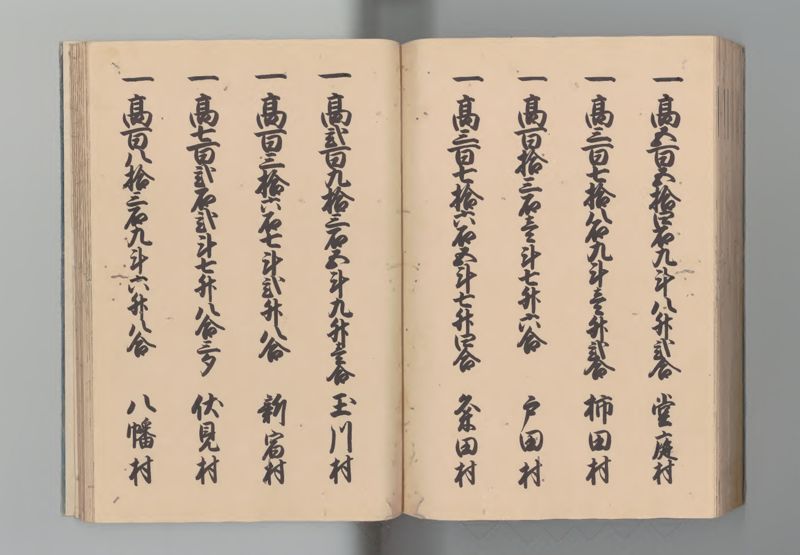 一 高五百五拾四石九斗八升弐合 堂庭村
一 高三百七拾八石九斗壱升弐合 柿田村
一 高百拾三石壱斗七升六合 戸田村
一 高三百七拾六石五斗七升四合 久米田村
一 高弐百九拾三石五斗九升壱合 玉川村
一 高百三拾六石七斗弐升八合 新宿村
一 高七百弐石弐斗七升八合三夕 伏見村
一 高百八拾三石九斗六升八合 八幡村